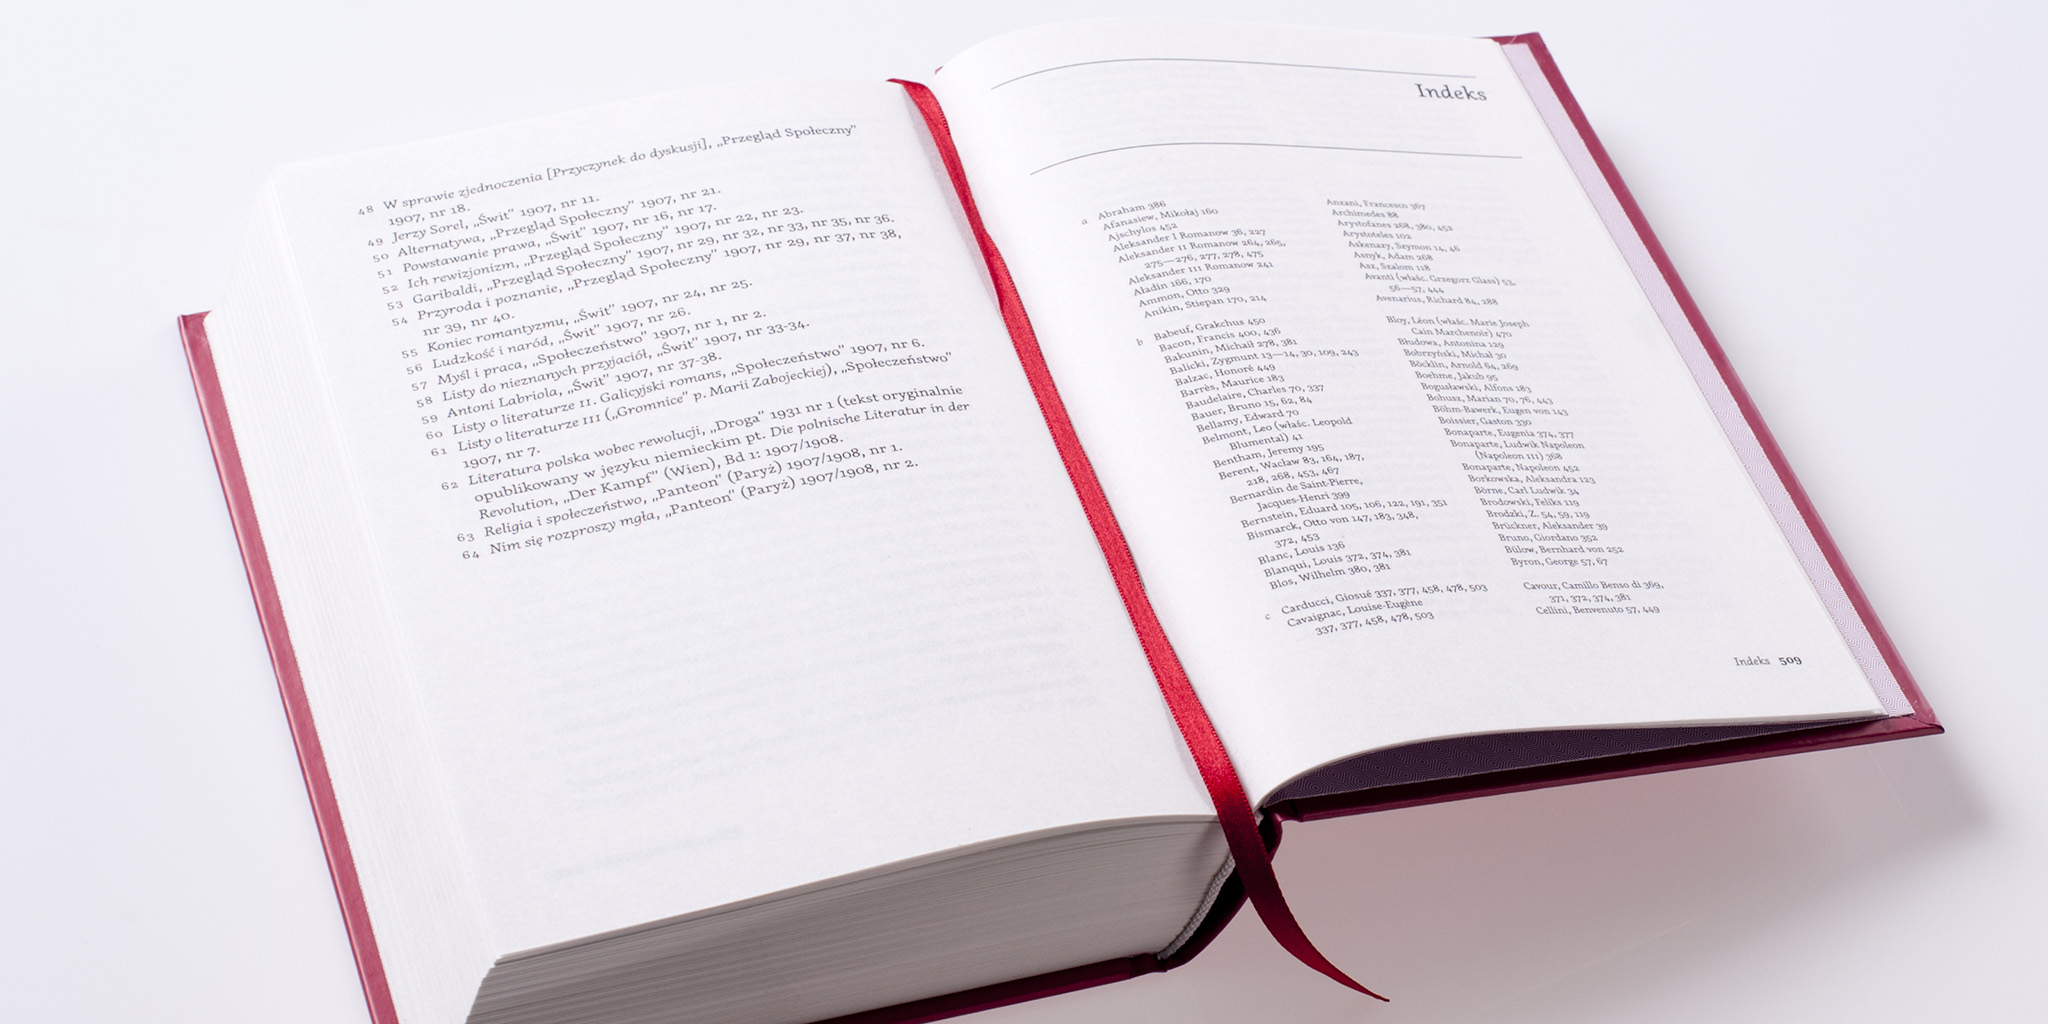 48 W sprawie zjednoczenia [Przyczynek do dyskusji], „Przegląd Społeczny”
1907, nr 18.
49 Jerzy Sorel, „Świt” 1907, nr 11.
50 Alternatywa, „Przegląd Społeczny” 1907, nr 21.
51 Powstawanie prawa, „Świt” 1907, nr 16, nr 17.
52 Ich rewizjonizm, „Przegląd Społeczny” 1907, nr 22, nr 23.
53 Garibaldi, „Przegląd Społeczny” 1907, nr 29, nr 32, nr 33, nr 35, nr 36.
54 Przyroda i poznanie, „Przegląd Społeczny” 1907, nr 29, nr 37, nr 38,
nr 39, nr 40.
55 Koniec romantyzmu, „Świt” 1907, nr 24, nr 25.
56 Ludzkość i naród, „Świt” 1907, nr 26.
57 Myśl i praca, „Społeczeństwo” 1907, nr 1, nr 2.
58 Listy do nieznanych przyjaciół, „Świt” 1907, nr 33-34.
59 Antoni Labriola, „Świt” 1907, nr 37-38.
60 Listy o literaturze II. Galicyjski romans, „Społeczeństwo” 1907, nr 6.
61 Listy o literaturze III („Gromnice” p. Marii Zabojeckiej), „Społeczeństwo”
1907, nr 7.
62 Literatura polska wobec rewolucji, „Droga” 1931 nr 1 (tekst oryginalnie
opublikowany w języku niemieckim pt. Die polnische Literatur in der
Revolution, „Der Kampf” (Wien), Bd 1: 1907/1908.
63 Religia i społeczeństwo, „Panteon” (Paryż) 1907/1908, nr 1.
64 Nim się rozproszy mgła, „Panteon” (Paryż) 1907/1908, nr 2.
Indeks
a Abraham 386
Afanasiew, Mikołaj 160
Ajschylos 452
Aleksander I Romanow 36, 227
Aleksander II Romanow 264, 265,
275—276, 277, 278, 475
Aleksander III Romanow 241
Aladin 166, 170
Ammon, Otto 329
Anikin, Stiepan 170, 214
b Babeuf, Grakchus 450
Bacon, Francis 400, 436
Bakunin, Michaił 278, 381
Balicki, Zygmunt 13—14, 30, 109, 243
Balzac, Honoré 449
Barrès, Maurice 183
Baudelaire, Charles 70, 337
Bauer, Bruno 15, 62, 84
Bellamy, Edward 70
Belmont, Leo (właśc. Leopold
Blumental) 41
Bentham, Jeremy 195
Berent, Wacław 83, 164, 187,
218, 268, 453, 467
Bernardin de Saint-Pierre,
Jacques-Henri 399
Bernstein, Eduard 105, 106, 122, 191, 351
Bismarck, Otto von 147, 183, 348,
372, 453
Blanc, Louis 136
Blanqui, Louis 372, 374, 381
Blos, Wilhelm 380, 381
c Carducci, Giosué 337, 377, 458, 478, 503
Cavaignac, Louise-Eugène
337, 377, 458, 478, 503
Anzani, Francesco 367
Archimedes 88
Arystofanes 268, 380, 452
Arystoteles 102
Askenazy, Szymon 14, 46
Asnyk, Adam 268
Asz, Szalom 118
Avanti (właśc. Grzegorz Glass) 53,
56—57, 444
Avenarius, Richard 84, 288
Bloy, Léon (właśc. Marie Joseph
Cain Marchenoir) 470
Błudowa, Antonina 129
Bobrzyński, Michał 30
Böcklin, Arnold 64, 269
Boehme, Jakub 95
Bogusławski, Alfons 183
Bohusz, Marian 70, 76, 443
Böhm-Bawerk, Eugen von 143
Boissier, Gaston 330
Bonaparte, Eugenia 374, 377
Bonaparte, Ludwik Napoleon
(Napoleon III) 368
Bonaparte, Napoleon 452
Borkowska, Aleksandra 123
Börne, Carl Ludwik 34
Brodowski, Feliks 119
Brodzki, Z. 54, 59, 119
Brückner, Aleksander 39
Bruno, Giordano 352
Bülow, Bernhard von 252
Byron, George 57, 67
Cavour, Camillo Benso di 369,
371, 372, 374, 381
Cellini, Benvenuto 57, 449
Indeks 509